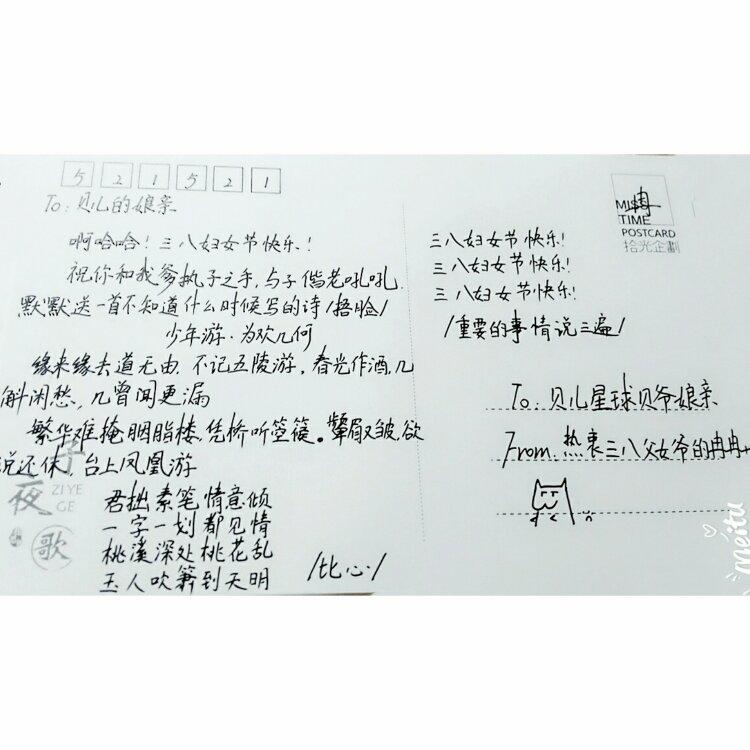 5 2 1 5 2 1
To: 贝儿的娘亲
啊哈哈!三八妇女节快乐!
祝你和我爹执子之手,与子偕老吼吼.
默默送一首不知道什么时候写的诗/捂脸/
少年游·为欢几何
缘来缘去道无由.不记五陵游,春光作酒,几
斛闲愁,几曾闻更漏
繁华难掩胭脂楼,凭桥听箜篌。颦眉皱,欲
说还休,台上凤凰游
君拙素笔情意倾
一字一划都见情
桃溪深处桃花乱
玉人吹箫到天明
/比心/
子夜歌
ZIYE
GE
MISS
TIME
POSTCARD
拾光企劃
三八妇女节快乐!
三八妇女节快乐!
三八妇女节快乐!
/重要的事情说三遍/
To: 贝儿星球贝爷娘亲
From: 热衷三八父女爷的冉冉
Meitu